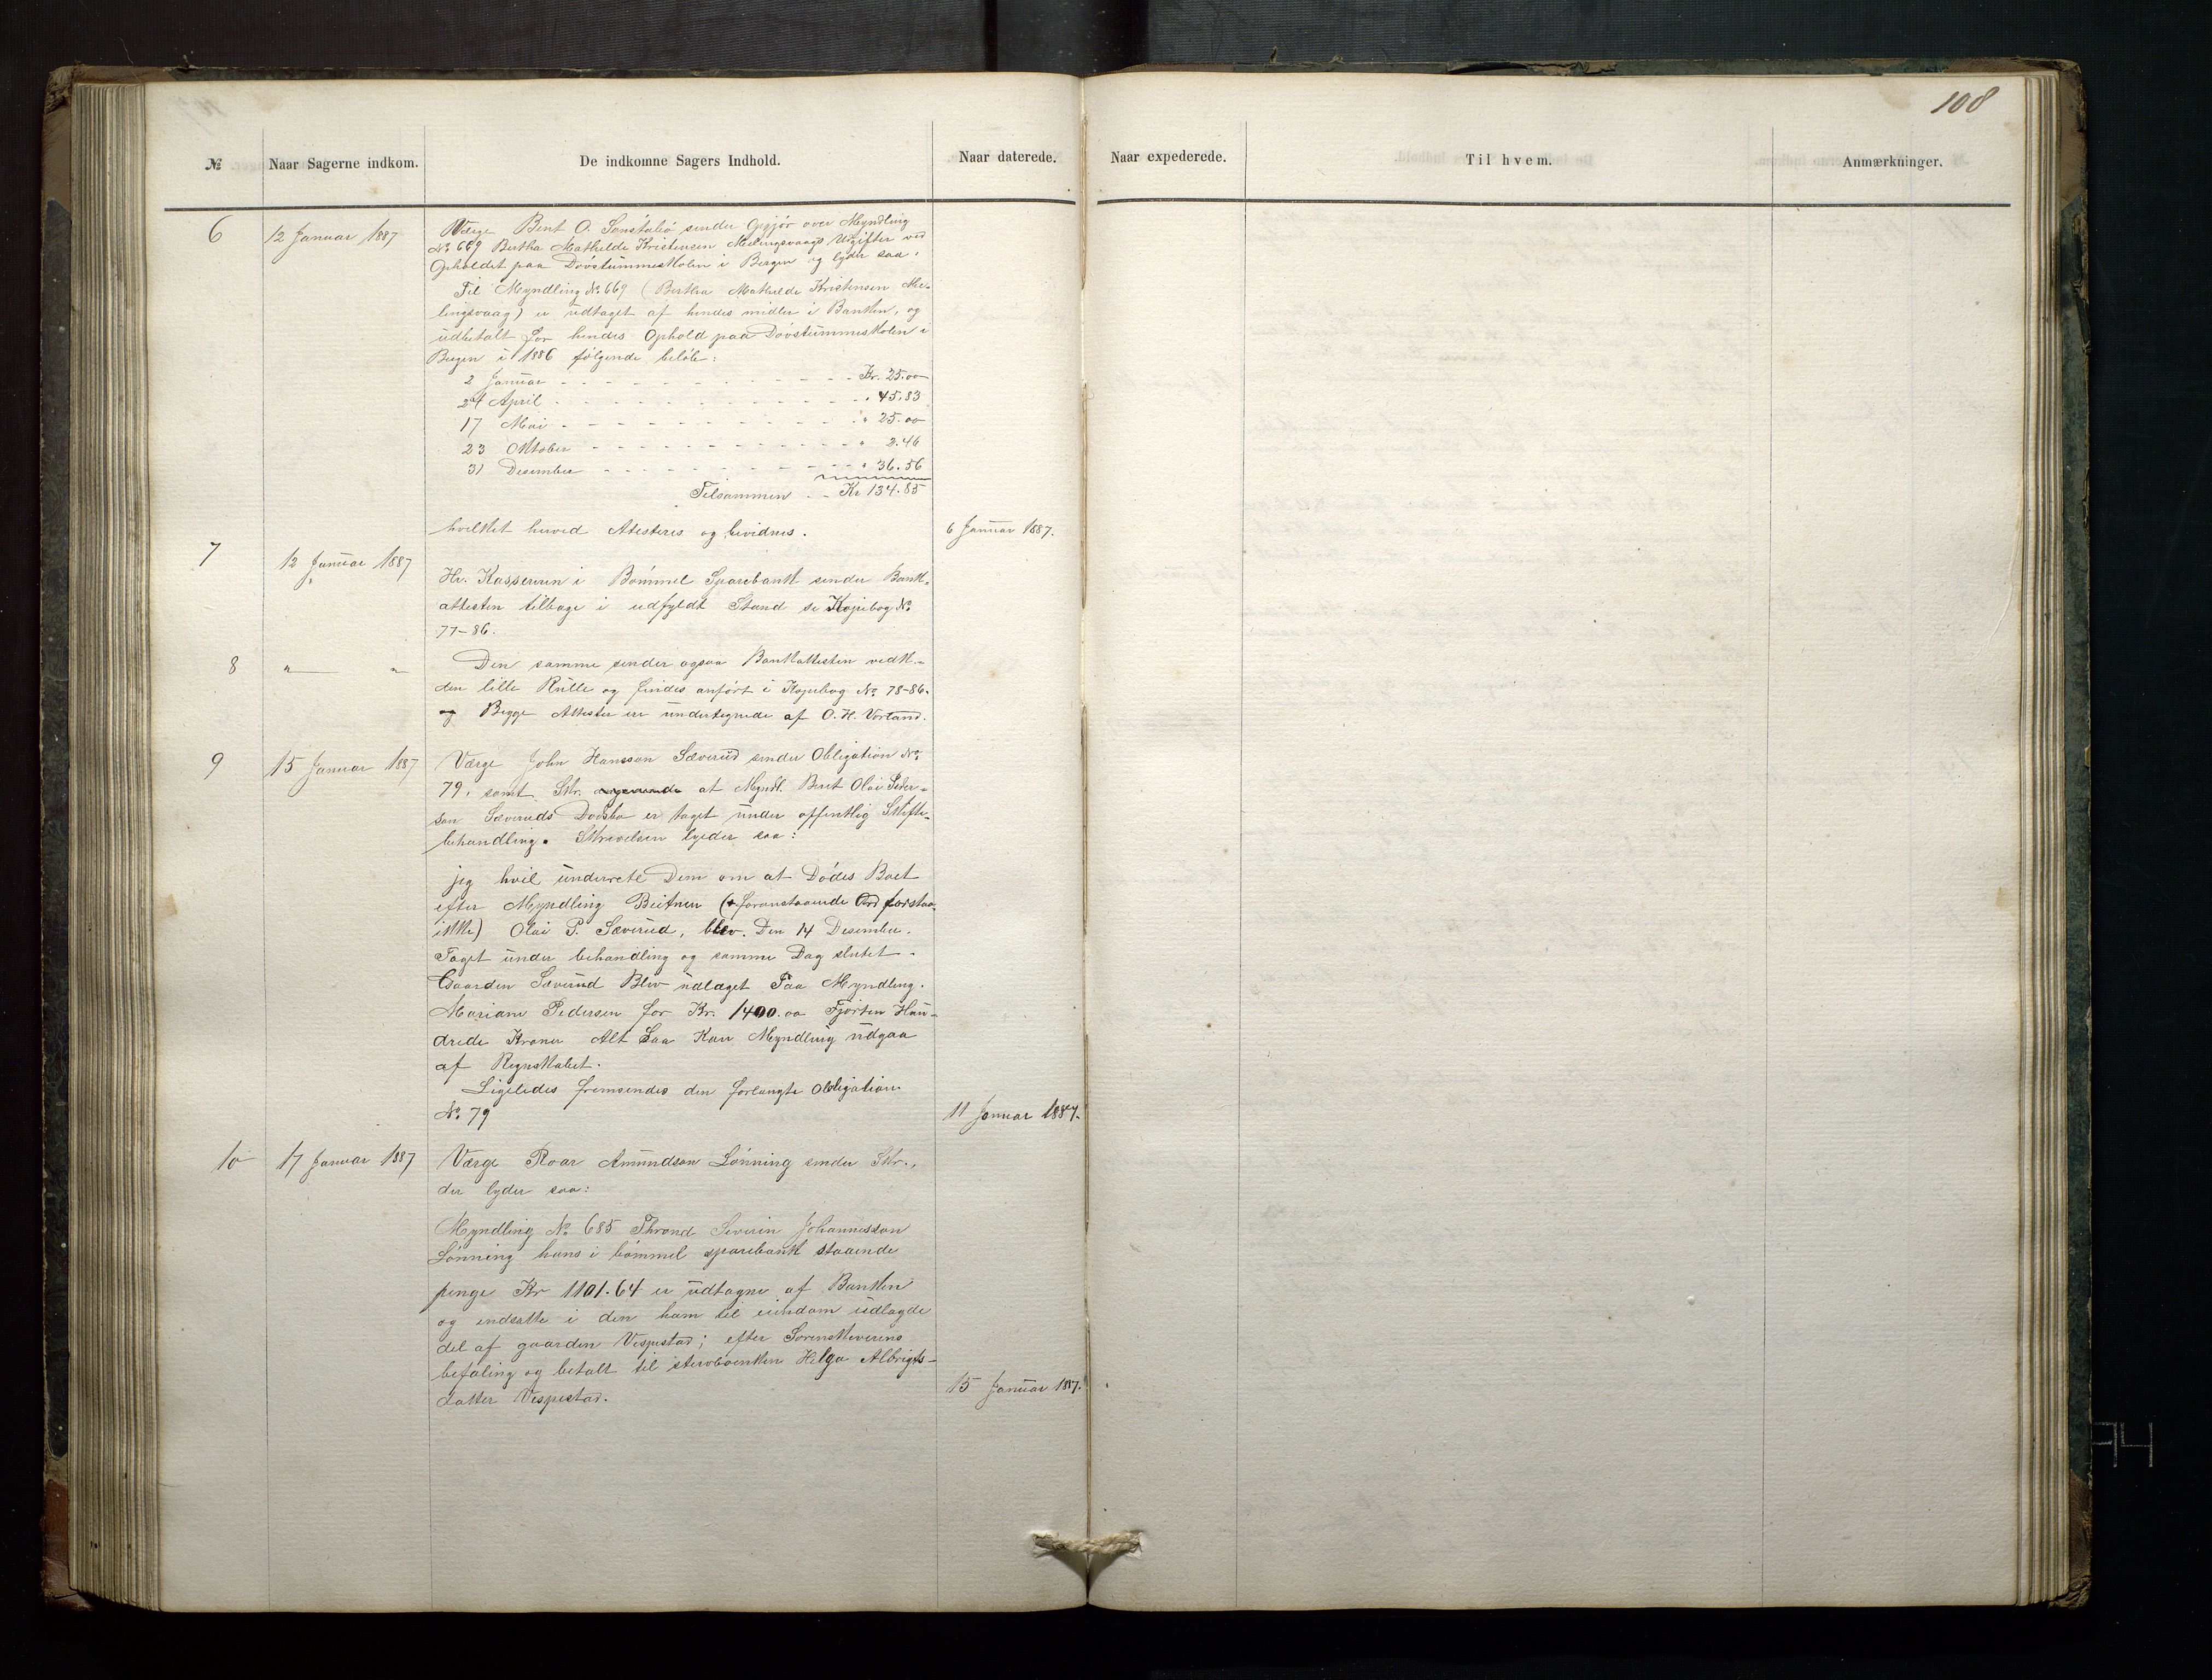 108
№ Naar Sagerne indkom. De indkomne Sagers Indhold. Naar daterede. Naar expederede. Til hvem. Anmærkninger.
6 12 Januar 1887 Værge Bent O. sender Opgjør over Myndling
№ 669 Bertha Mathilde Kristensen Melingsvaags Udgifter ved
Opholdet paa Døvstummeskolen i Bergen og lyder saa:
Til Myndling № 669 (Bertha Mathilde Kristensen Me-
lingsvaag) er udtaget af hendes midler i Banken, og
udbetalt for hendes Ophold paa Døvstummeskolen i
Bergen i 1886 følgende beløb:
2 Januar - - - Kr. 25.00
24 April - - - " 45,83
17 Mai - - - " 25.00
23 Oktober - - - " 2.46
31 Desember - - - " 36.56
Tilsammen - - Kr 134.85
hvilket herved Atesteres og bevidnes. 6 Januar 1887.
7 12 Januar 1887
Hr. Kassereren i Bømmel Sparebank sender Bank-
attesten tilbage i udfyldt Stand se Kopibog №
77-86.
8 " " Den samme sender ogsaa Bankattesten vedk.
den lille Rulle og findes anført i Kopibog № 78-86.
og Begge Attester er undertegnede af O. H. Vorland.
9 15 Januar 1887 Værge John Hansson Sæverud sender Obligation №
79. samt Skr. at Myndl. Bent Olai Peder-
son Sæveruds Dødsbo er taget under offentlig Skifte-
behandling. Skrivelsen lyder saa:
jeg hvil underrete Dem om at Dødes Boet
efter Myndling Beitnen (+ foranstaaende Ord forstaa
ikke) Olai P. Sæverud, blev. Den 14 Desember.
Taget under behandling og samme Dag slutet.
Gaarden Sæverud Blev udlaget Paa Myndling.
Mariane Pedersen for Kr. 1400.00 Fjorten Hun-
drede Kroner Alt Saa Kan Myndling udgaa
af Regnskabet.
Ligeledes fremsendes den forlangte Obligation
№ 79 11 Januar 1887.
10 17 Januar 1887 Værge Roar Amundson Lønning sender Skr.,
der lyder saa:
Myndling № 685 Thrond Severin Johannisson
Lønning hans i bømmel sparebank staaende
penge Kr 1101.64 er udtagne af Banken
og indsatte i den ham til eiendom udlagde
del af gaarden Vespestad; efter Sorenskriverens
befaling og betalt til stervboenken Helga Albrigts-
datter Vespestad. 15 Januar 1887.